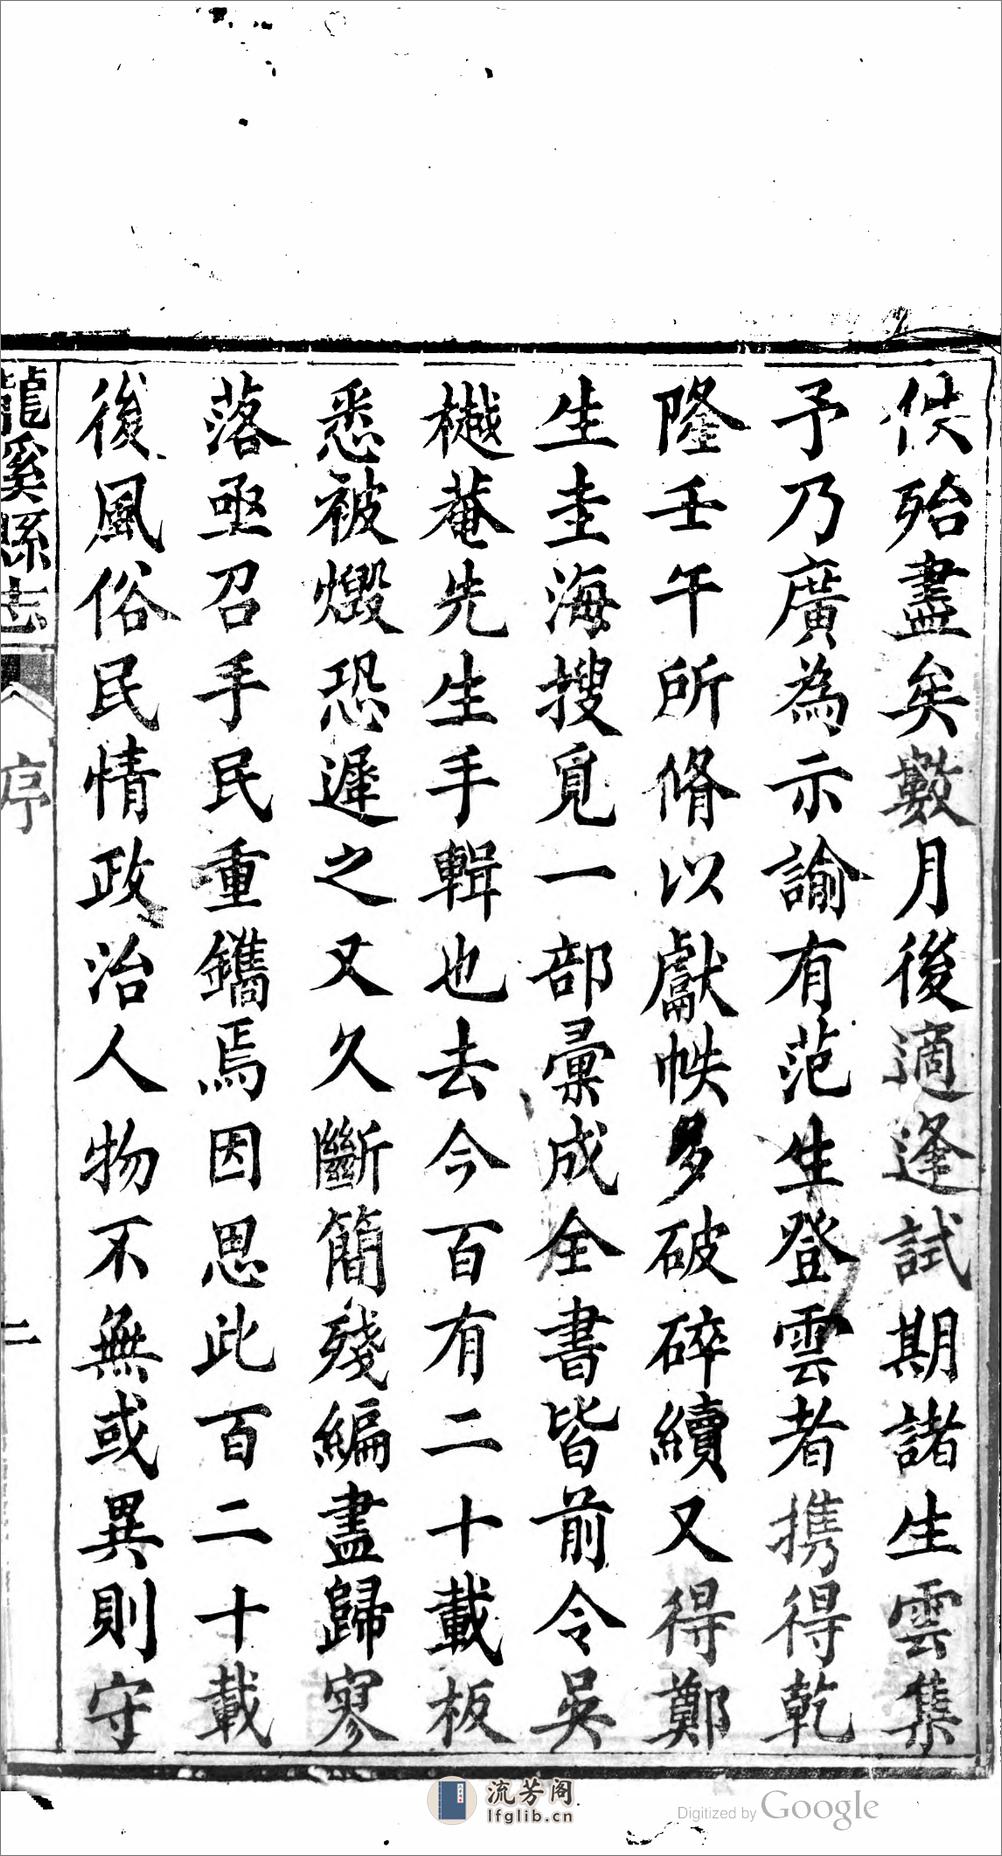 佚殆盡矣數月後適逢試期諸生雲集
予乃廣為示諭有范生登雲者携得乾
隆壬午所脩以獻帙多破碎續又得鄭
生圭海搜覓一部彙成全書皆前令吳
樾菴先生手輯也去今百有二十載板
悉被燬恐遲之又久斷簡殘編盡歸寥
落亟召手民重鐫焉因思此百二十載
後風俗民情政治人物不無或異則守
龍溪縣志
序
二
流芳阁
lfglib.cn
Digitized by Google